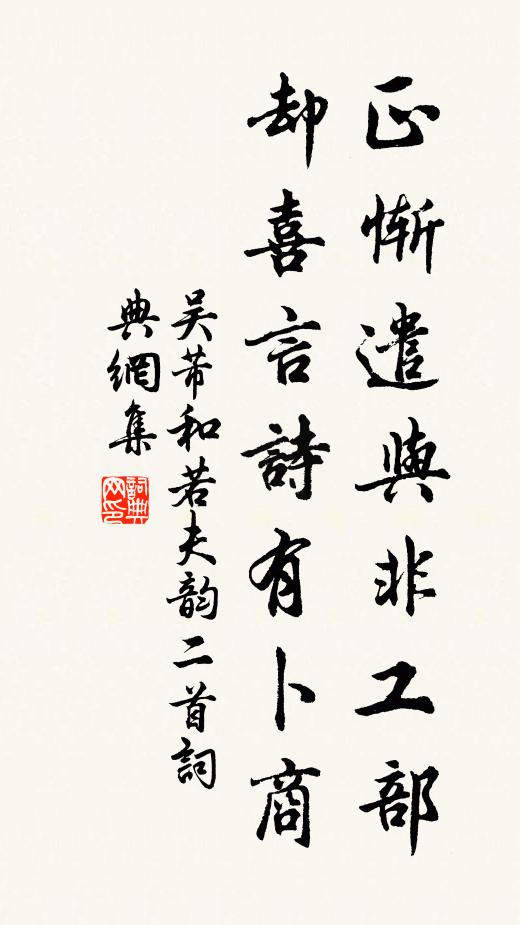 正慚遣興非工部
却喜言詩有卜商
吴芾和若夫韵二首詞
典網集
詞典
网印